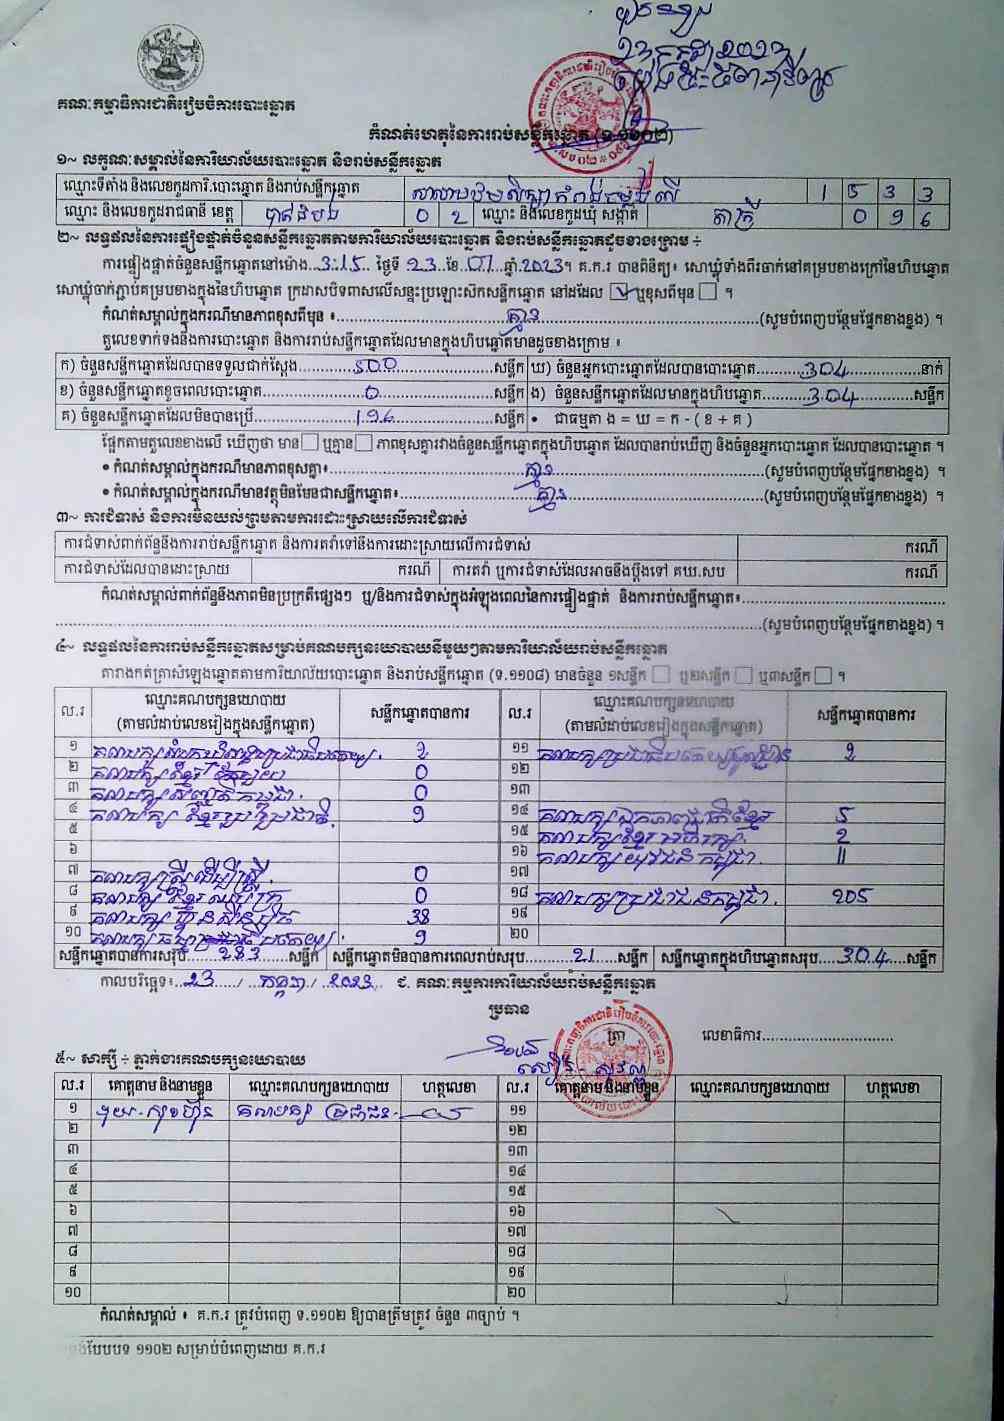 គណៈកម្មាធិការជាតិរៀបចំការបោះឆ្នោត
កំណត់ហេតុនៃការរាប់សន្លឹកឆ្នោត (ទ.១១០២)
១~ លក្ខណៈសម្គាល់នៃការិយាល័យបោះឆ្នោត និងរាប់សន្លឹកឆ្នោត
ឈ្មោះទីតាំង និងលេខកូដការិ.បោះឆ្នោត និងរាប់សន្លឹកឆ្នោត 1 5 3 3
ឈ្មោះ និងលេខកូដរាជធានី ខេត្ត បាត់ដំបង 0 2 ឈ្មោះ និងលេខកូដឃុំ សង្កាត់ តាគ្រី 0 9 6
២~ លទ្ធផលនៃការផ្ទៀងផ្ទាត់ចំនួនសន្លឹកឆ្នោតតាមការិយាល័យបោះឆ្នោត និងរាប់សន្លឹកឆ្នោតដូចខាងក្រោម ÷
ការផ្ទៀងផ្ទាត់ចំនួនសន្លឹកឆ្នោតនៅម៉ោង..3:15.. ថ្ងៃទី 23 ខែ 07 ឆ្នាំ 2023។ គ.ក.រ បានពិនិត្យ៖ សោឃ្លុំទាំងពីរចាក់នៅគម្របខាងក្រៅនៃហិបឆ្នោត
សោឃ្លុំចាក់ភ្ជាប់គម្របខាងក្នុងនៃហិបឆ្នោត ក្រដាសបិទពាសលើសន្ទះប្រឡោះសិកសន្លឹកឆ្នោត នៅដដែល ☑ ឬខុសពីមុន ☐ ។
កំណត់សម្គាល់ក្នុងករណីមានភាពខុសពីមុន ៖ គ្មាន (សូមបំពេញបន្ថែមផ្នែកខាងខ្នង) ។
តួលេខទាក់ទងនឹងការបោះឆ្នោត និងការរាប់សន្លឹកឆ្នោតដែលមានក្នុងហិបឆ្នោតមានដូចខាងក្រោម ៖
ក) ចំនួនសន្លឹកឆ្នោតដែលបានទទួលជាក់ស្តែង 500 សន្លឹក ឃ) ចំនួនអ្នកបោះឆ្នោតដែលបានបោះឆ្នោត 304 នាក់
ខ) ចំនួនសន្លឹកឆ្នោតខូចពេលបោះឆ្នោត 0 សន្លឹក ង) ចំនួនសន្លឹកឆ្នោតដែលមានក្នុងហិបឆ្នោត 304 សន្លឹក
គ) ចំនួនសន្លឹកឆ្នោតដែលមិនបានប្រើ 196 សន្លឹក • ជាធម្មតា ង = ឃ = ក - ( ខ + គ )
ផ្អែកតាមតួលេខខាងលើ ឃើញថា មាន ☐ ឬគ្មាន ☐ ភាពខុសគ្នារវាងចំនួនសន្លឹកឆ្នោតក្នុងហិបឆ្នោត ដែលបានរាប់ឃើញ និងចំនួនអ្នកបោះឆ្នោត ដែលបានបោះឆ្នោត ។
• កំណត់សម្គាល់ក្នុងករណីមានភាពខុសគ្នា៖ គ្មាន (សូមបំពេញបន្ថែមផ្នែកខាងខ្នង) ។
• កំណត់សម្គាល់ក្នុងករណីមានវត្ថុមិនមែនជាសន្លឹកឆ្នោត៖ គ្មាន (សូមបំពេញបន្ថែមផ្នែកខាងខ្នង) ។
៣~ ការជំទាស់ និងការមិនយល់ព្រមតាមការដោះស្រាយលើការជំទាស់
ការជំទាស់ពាក់ព័ន្ធនឹងការរាប់សន្លឹកឆ្នោត និងការតវ៉ាទៅនឹងការដោះស្រាយលើការជំទាស់ ករណី
ការជំទាស់ដែលបានដោះស្រាយ ករណី ការតវ៉ា ឬការជំទាស់ដែលអាចនឹងប្តឹងទៅ គឃ.សប ករណី
កំណត់សម្គាល់ពាក់ព័ន្ធនឹងភាពមិនប្រក្រតីផ្សេងៗ ឬ/និងការជំទាស់ក្នុងអំឡុងពេលនៃការផ្ទៀងផ្ទាត់ និងការរាប់សន្លឹកឆ្នោត៖
(សូមបំពេញបន្ថែមផ្នែកខាងខ្នង) ។
៤~ លទ្ធផលនៃការរាប់សន្លឹកឆ្នោតសម្រាប់គណបក្សនយោបាយនីមួយៗតាមការិយាល័យរាប់សន្លឹកឆ្នោត
តារាងកត់ត្រាសំឡេងឆ្នោតតាមការិយាល័យបោះឆ្នោត និងរាប់សន្លឹកឆ្នោត (ទ.១១០៨) មានចំនួន ១សន្លឹក ☐ ឬ២សន្លឹក ☐ ឬ៣សន្លឹក ☐ ។
ល.រ ឈ្មោះគណបក្សនយោបាយ (តាមលំដាប់លេខរៀងក្នុងសន្លឹកឆ្នោត) សន្លឹកឆ្នោតបានការ ល.រ ឈ្មោះគណបក្សនយោបាយ (តាមលំដាប់លេខរៀងក្នុងសន្លឹកឆ្នោត) សន្លឹកឆ្នោតបានការ
១ គណបក្ស ១១ គណបក្សប្រជាធិបតេយ្យមូលដ្ឋាន
២ គណបក្សខ្មែរ 0 ១២
៣ គណបក្ស កម្ពុជា 0 ១៣
៤ គណបក្ស ខ្មែររួបរួមជាតិ ១ ១៤ គណបក្សឯកភាពជាតិខ្មែរ 5
៥ ១៥ គណបក្សខ្មែរ 2
៦ ១៦ គណបក្ស យុវជនកម្ពុជា 11
៧ គណបក្សស្ត្រីដើម្បីស្ត្រី 0 ១៧
៨ គណបក្សខ្មែរ 0 ១៨ គណបក្សប្រជាជនកម្ពុជា 205
៩ គណបក្សហ៊្វុនស៊ិនប៉ិច 38 ១៩
១០ គណបក្សធម្មាធិបតេយ្យ ១ ២០
សន្លឹកឆ្នោតបានការសរុប 283 សន្លឹក សន្លឹកឆ្នោតមិនបានការពេលរាប់សរុប 21 សន្លឹក សន្លឹកឆ្នោតក្នុងហិបឆ្នោតសរុប 304 សន្លឹក
កាលបរិច្ឆេទ៖ 23 / កក្កដា / 2023 ជ. គណៈកម្មការការិយាល័យរាប់សន្លឹកឆ្នោត
ប្រធាន
ត្រា លេខាធិការ
៥~ សាក្សី ÷ ភ្នាក់ងារគណបក្សនយោបាយ
ល.រ គោត្តនាម និងនាមខ្លួន ឈ្មោះគណបក្សនយោបាយ ហត្ថលេខា ល.រ គោត្តនាម និងនាមខ្លួន ឈ្មោះគណបក្សនយោបាយ ហត្ថលេខា
១ គណបក្ស ប្រជាជន ១១
២ ១២
៣ ១៣
៤ ១៤
៥ ១៥
៦ ១៦
៧ ១៧
៨ ១៨
៩ ១៩
១០ ២០
កំណត់សម្គាល់ ៖ គ.ក.រ ត្រូវបំពេញ ទ.១១០២ ឱ្យបានត្រឹមត្រូវ ចំនួន ៣ច្បាប់ ។
បែបបទ ១១០២ សម្រាប់បំពេញដោយ គ.ក.រ